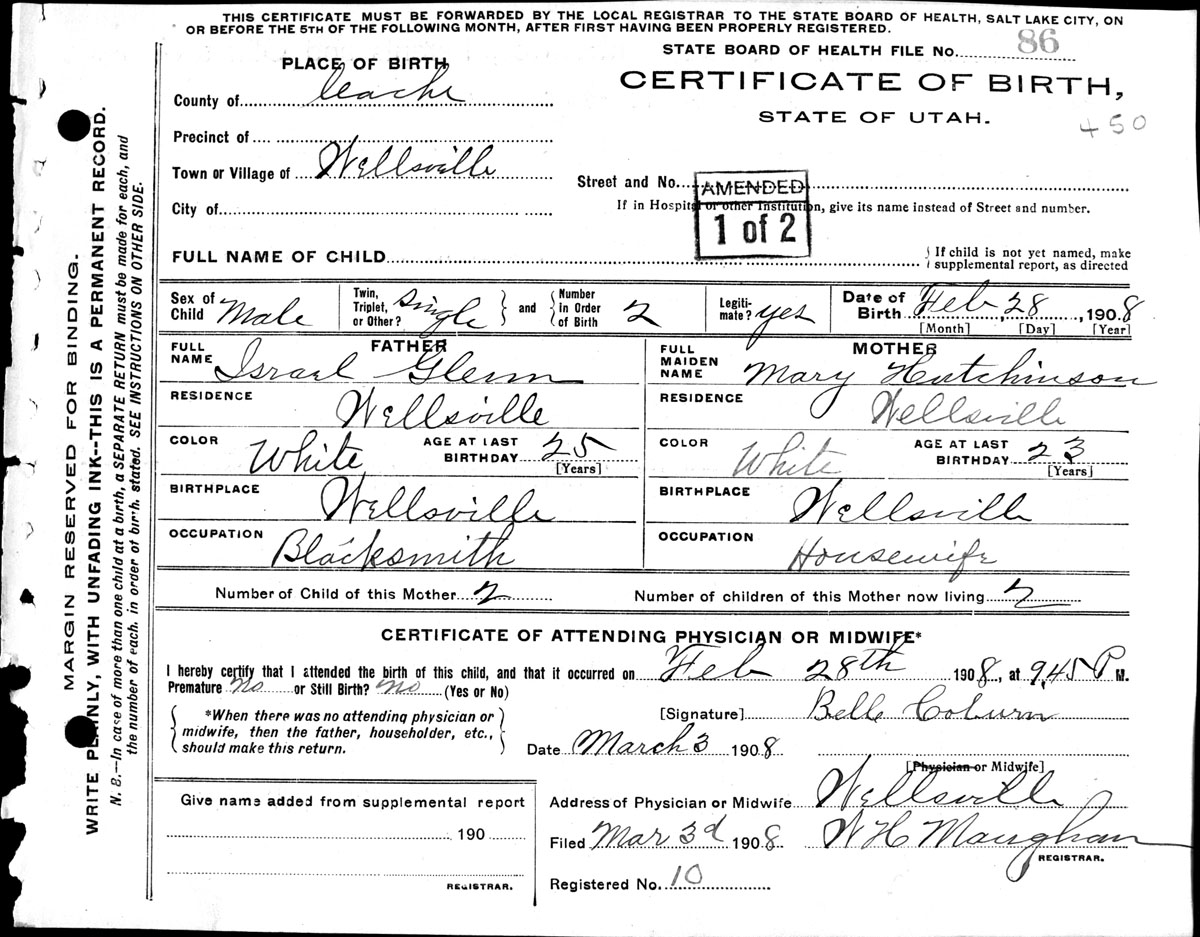 THIS CERTIFICATE MUST BE FORWARDED BY THE LOCAL REGISTRAR TO THE STATE BOARD OF HEALTH, SALT LAKE CITY, ON
OR BEFORE THE 5TH OF THE FOLLOWING MONTH, AFTER FIRST HAVING BEEN PROPERLY REGISTERED.
STATE BOARD OF HEALTH FILE No. 86
PLACE OF BIRTH
CERTIFICATE OF BIRTH,
County of Cache
STATE OF UTAH.
450
Precinct of
Town or Village of Wellsville
Street and No.
AMENDED
1 of 2
City of
If in Hospital or other Institution, give its name instead of Street and number.
FULL NAME OF CHILD
{If child is not yet named, make
supplemental report, as directed
Sex of Child Male
Twin, Triplet, or Other? single
and
Number in Order of Birth 2
Legiti-mate? yes
Date of Birth Feb 28, 1908
[Month] [Day] [Year]
FATHER
FULL NAME Israel Glenn
RESIDENCE Wellsville
COLOR White
AGE AT LAST BIRTHDAY 25
[Years]
BIRTHPLACE Wellsville
OCCUPATION Blacksmith
MOTHER
FULL MAIDEN NAME Mary Hutchinson
RESIDENCE Wellsville
COLOR White
AGE AT LAST BIRTHDAY 23
[Years]
BIRTHPLACE Wellsville
OCCUPATION Housewife
Number of Child of this Mother 2
Number of children of this Mother now living 2
CERTIFICATE OF ATTENDING PHYSICIAN OR MIDWIFE*
I hereby certify that I attended the birth of this child, and that it occurred on Feb 28th 1908, at 9,45 P M.
Premature No or Still Birth? no (Yes or No)
{*When there was no attending physician or
midwife, then the father, householder, etc.,
should make this return.}
[Signature] Belle Coburn
Date March 3 1908
[Physician or Midwife]
Give name added from supplemental report
190
REGISTRAR.
Address of Physician or Midwife Wellsville
Filed Mar 3d 1908 W H Maughan
REGISTRAR.
Registered No. 10
MARGIN RESERVED FOR BINDING.
WRITE PLAINLY, WITH UNFADING INK--THIS IS A PERMANENT RECORD.
N. B.--In case of more than one child at a birth, a SEPARATE RETURN must be made for each, and
the number of each, in order of birth, stated. SEE INSTRUCTIONS ON OTHER SIDE.